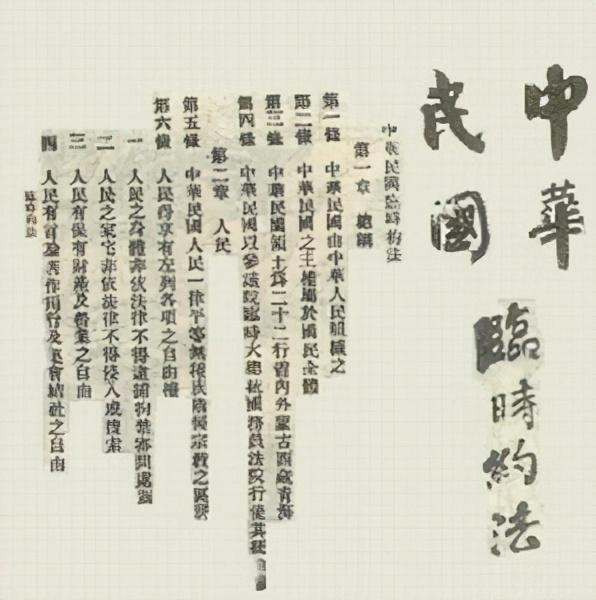 中華
民國
臨時約法
中華民國臨時約法
第一章 總綱
第一條 中華民國由中華人民組織之
第二條 中華民國之主權屬於國民全體
第三條 中華民國領土爲二十二行省內外蒙古西藏青海
第四條 中華民國以參議院臨時大總統國務員法院行使其統
第二章 人民
第五條 中華民國人民一律平等無種族階級宗教之區別
第六條 人民得享有左列各項之自由權
一 人民之身體非依法律不得逮捕拘禁審問處罰
二 人民之家宅非依法律不得侵入或搜索
三 人民有保有財產及營業之自由
四 人民有言論著作刊行及集會結社之自由
臨時約法